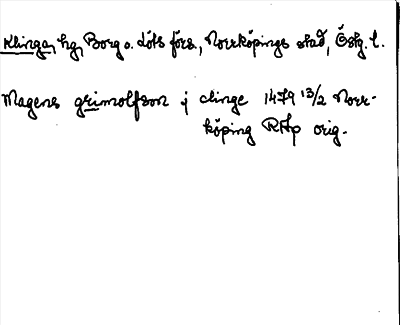 Klinga, hg, Borg o. Löts förs., Norrköpings stad, Östg. l.
Magens grimolfson j clinge 1479 13/2 Norr-
köping RAp orig.